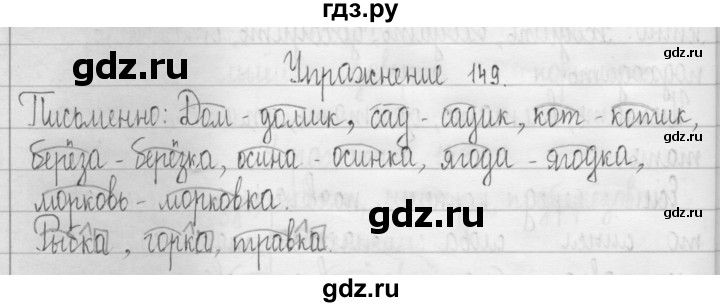 гдз.ру
gdz.ru
gdz.ru
Упражнение 149.
Письменно: Дом - домик, сад - садик, кот - котик,
берёза - берёзка, осина - осинка, ягода - ягодка,
морковь - морковка.
gdz.ru
Рыбка, горка, травка
gdz.ru